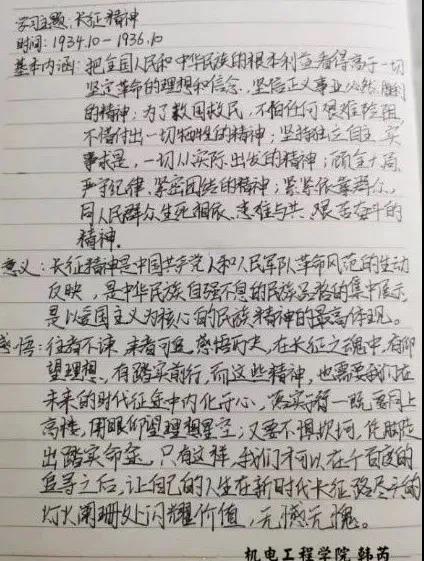 学习主题：长征精神
时间：1934.10－1936.10
基本内涵：把全国人民和中华民族的根本利益看得高于一切
坚定革命的理想和信念，坚信正义事业必然胜利
的精神；为了救国救民，不怕任何艰难险阻，
不惜付出一切牺牲的精神；坚持独立自主，实
事求是，一切从实际出发的精神；顾全大局、
严守纪律、紧密团结的精神；紧紧依靠群众，
同人民群众生死相依、患难与共、艰苦奋斗的
精神。
意义：长征精神是中国共产党人和人民军队革命风范的生动
反映，是中华民族自强不息的民族品格的集中展示，
是以爱国主义为核心的民族精神的最高体现。
感悟：往者不谏，来者可追，感悟历史，在长征之魂中，有仰
望理想，有踏实前行，而这些精神，也需要我们在
未来的时代征途中内化于心，落实于行一既要同上
高楼，用眼仰望理想星空；又要不惧坎坷，凭脚踏
出踏实命途。只有这样，我们才可以在千百度的
追寻之后，让自己的人生在新时代长征路尽头的
灯火阑珊处闪耀价值，无憾无愧。
机电工程学院 韩芮